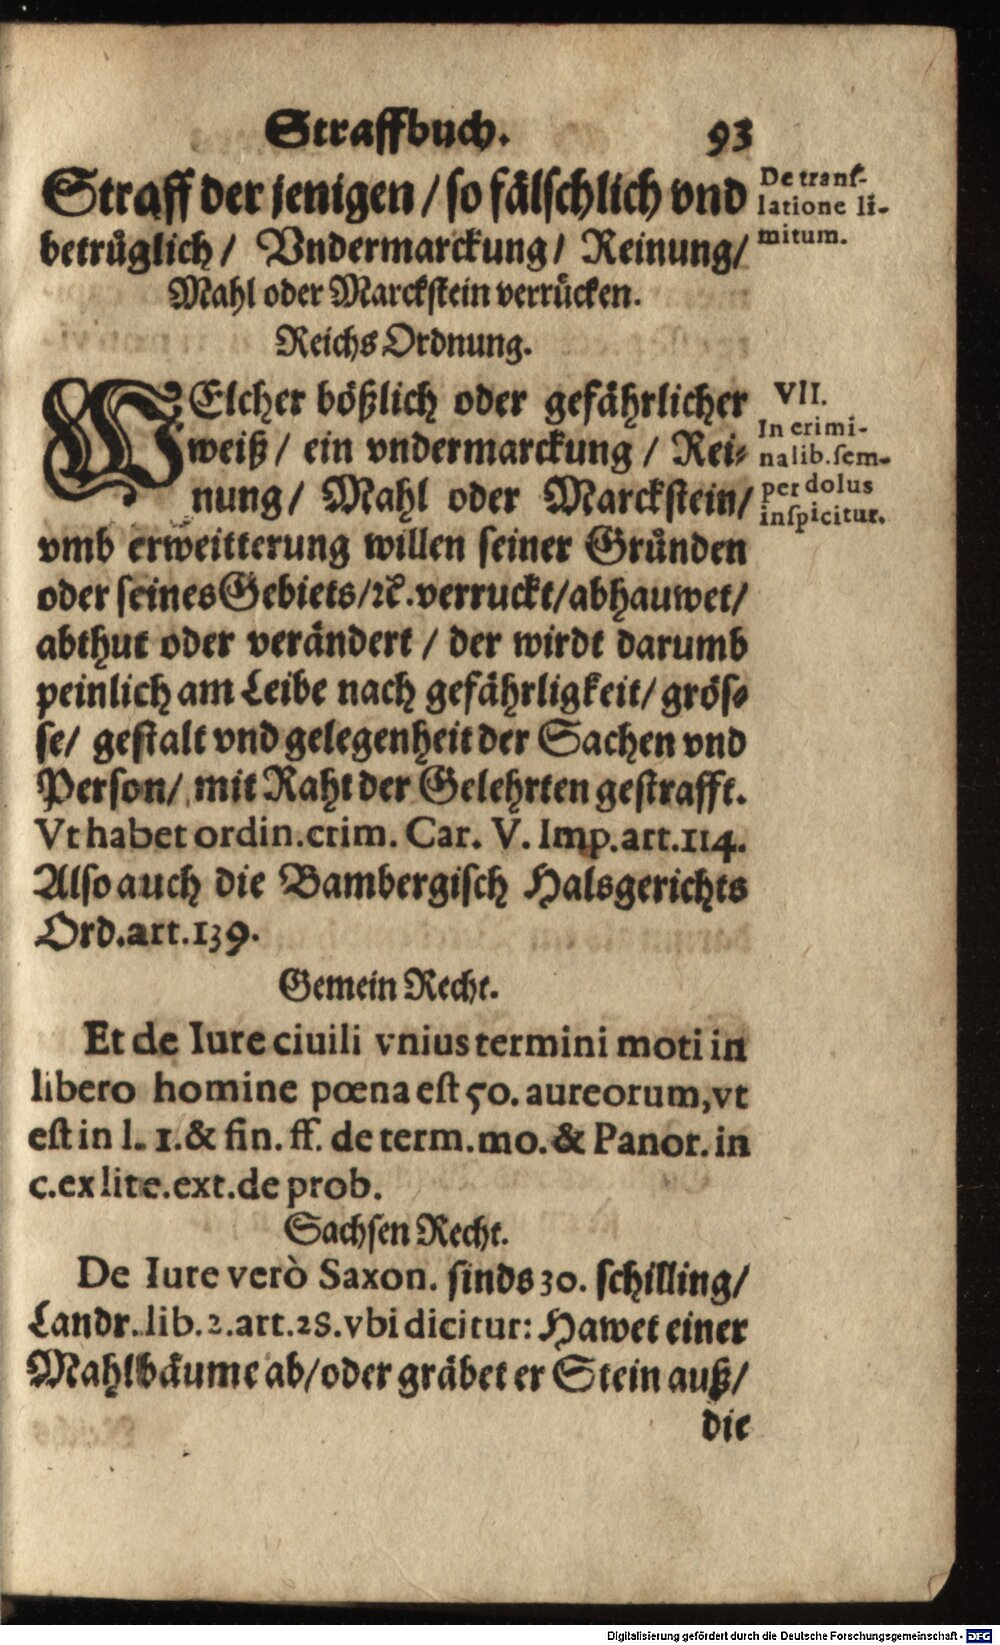 Straffbuch. 93
Straff der jenigen / so fälschlich vnd
betrůglich / Vndermarckung / Reinung /
Mahl oder Marckstein verrůcken.
De transf-
latione li-
mitum.
Reichs Ordnung.
WElcher bößlich oder gefährlicher
weiß / ein vndermarckung / Rei-
nung / Mahl oder Marckstein /
vmb erweitterung willen seiner Grůnden
oder seines Gebiets / ꝛc. verruckt / abhauwet /
abthut oder verändert / der wirdt darumb
peinlich am Leibe nach gefährligkeit / grös-
se / gestalt vnd gelegenheit der Sachen vnd
Person / mit Raht der Gelehrten gestrafft.
Vt habet ordin. crim. Car. V. Imp. art. 114.
Also auch die Bambergisch Halsgerichts
Ord. art. 139.
VII.
In crimi-
nalib. sem-
per dolus
inspicitur.
Gemein Recht.
Et de Iure ciuili vnius termini moti in
libero homine pœna est 50. aureorum, vt
est in l. 1. & fin. ff. de term. mo. & Panor. in
c. ex lite. ext. de prob.
Sachsen Recht.
De Iure verò Saxon. sinds 30. schilling /
Landr. lib. 2. art. 28. vbi dicitur: Hawet einer
Mahlbäume ab / oder gräbet er Stein auß /
die
Digitalisierung gefördert durch die Deutsche Forschungsgemeinschaft - DFG